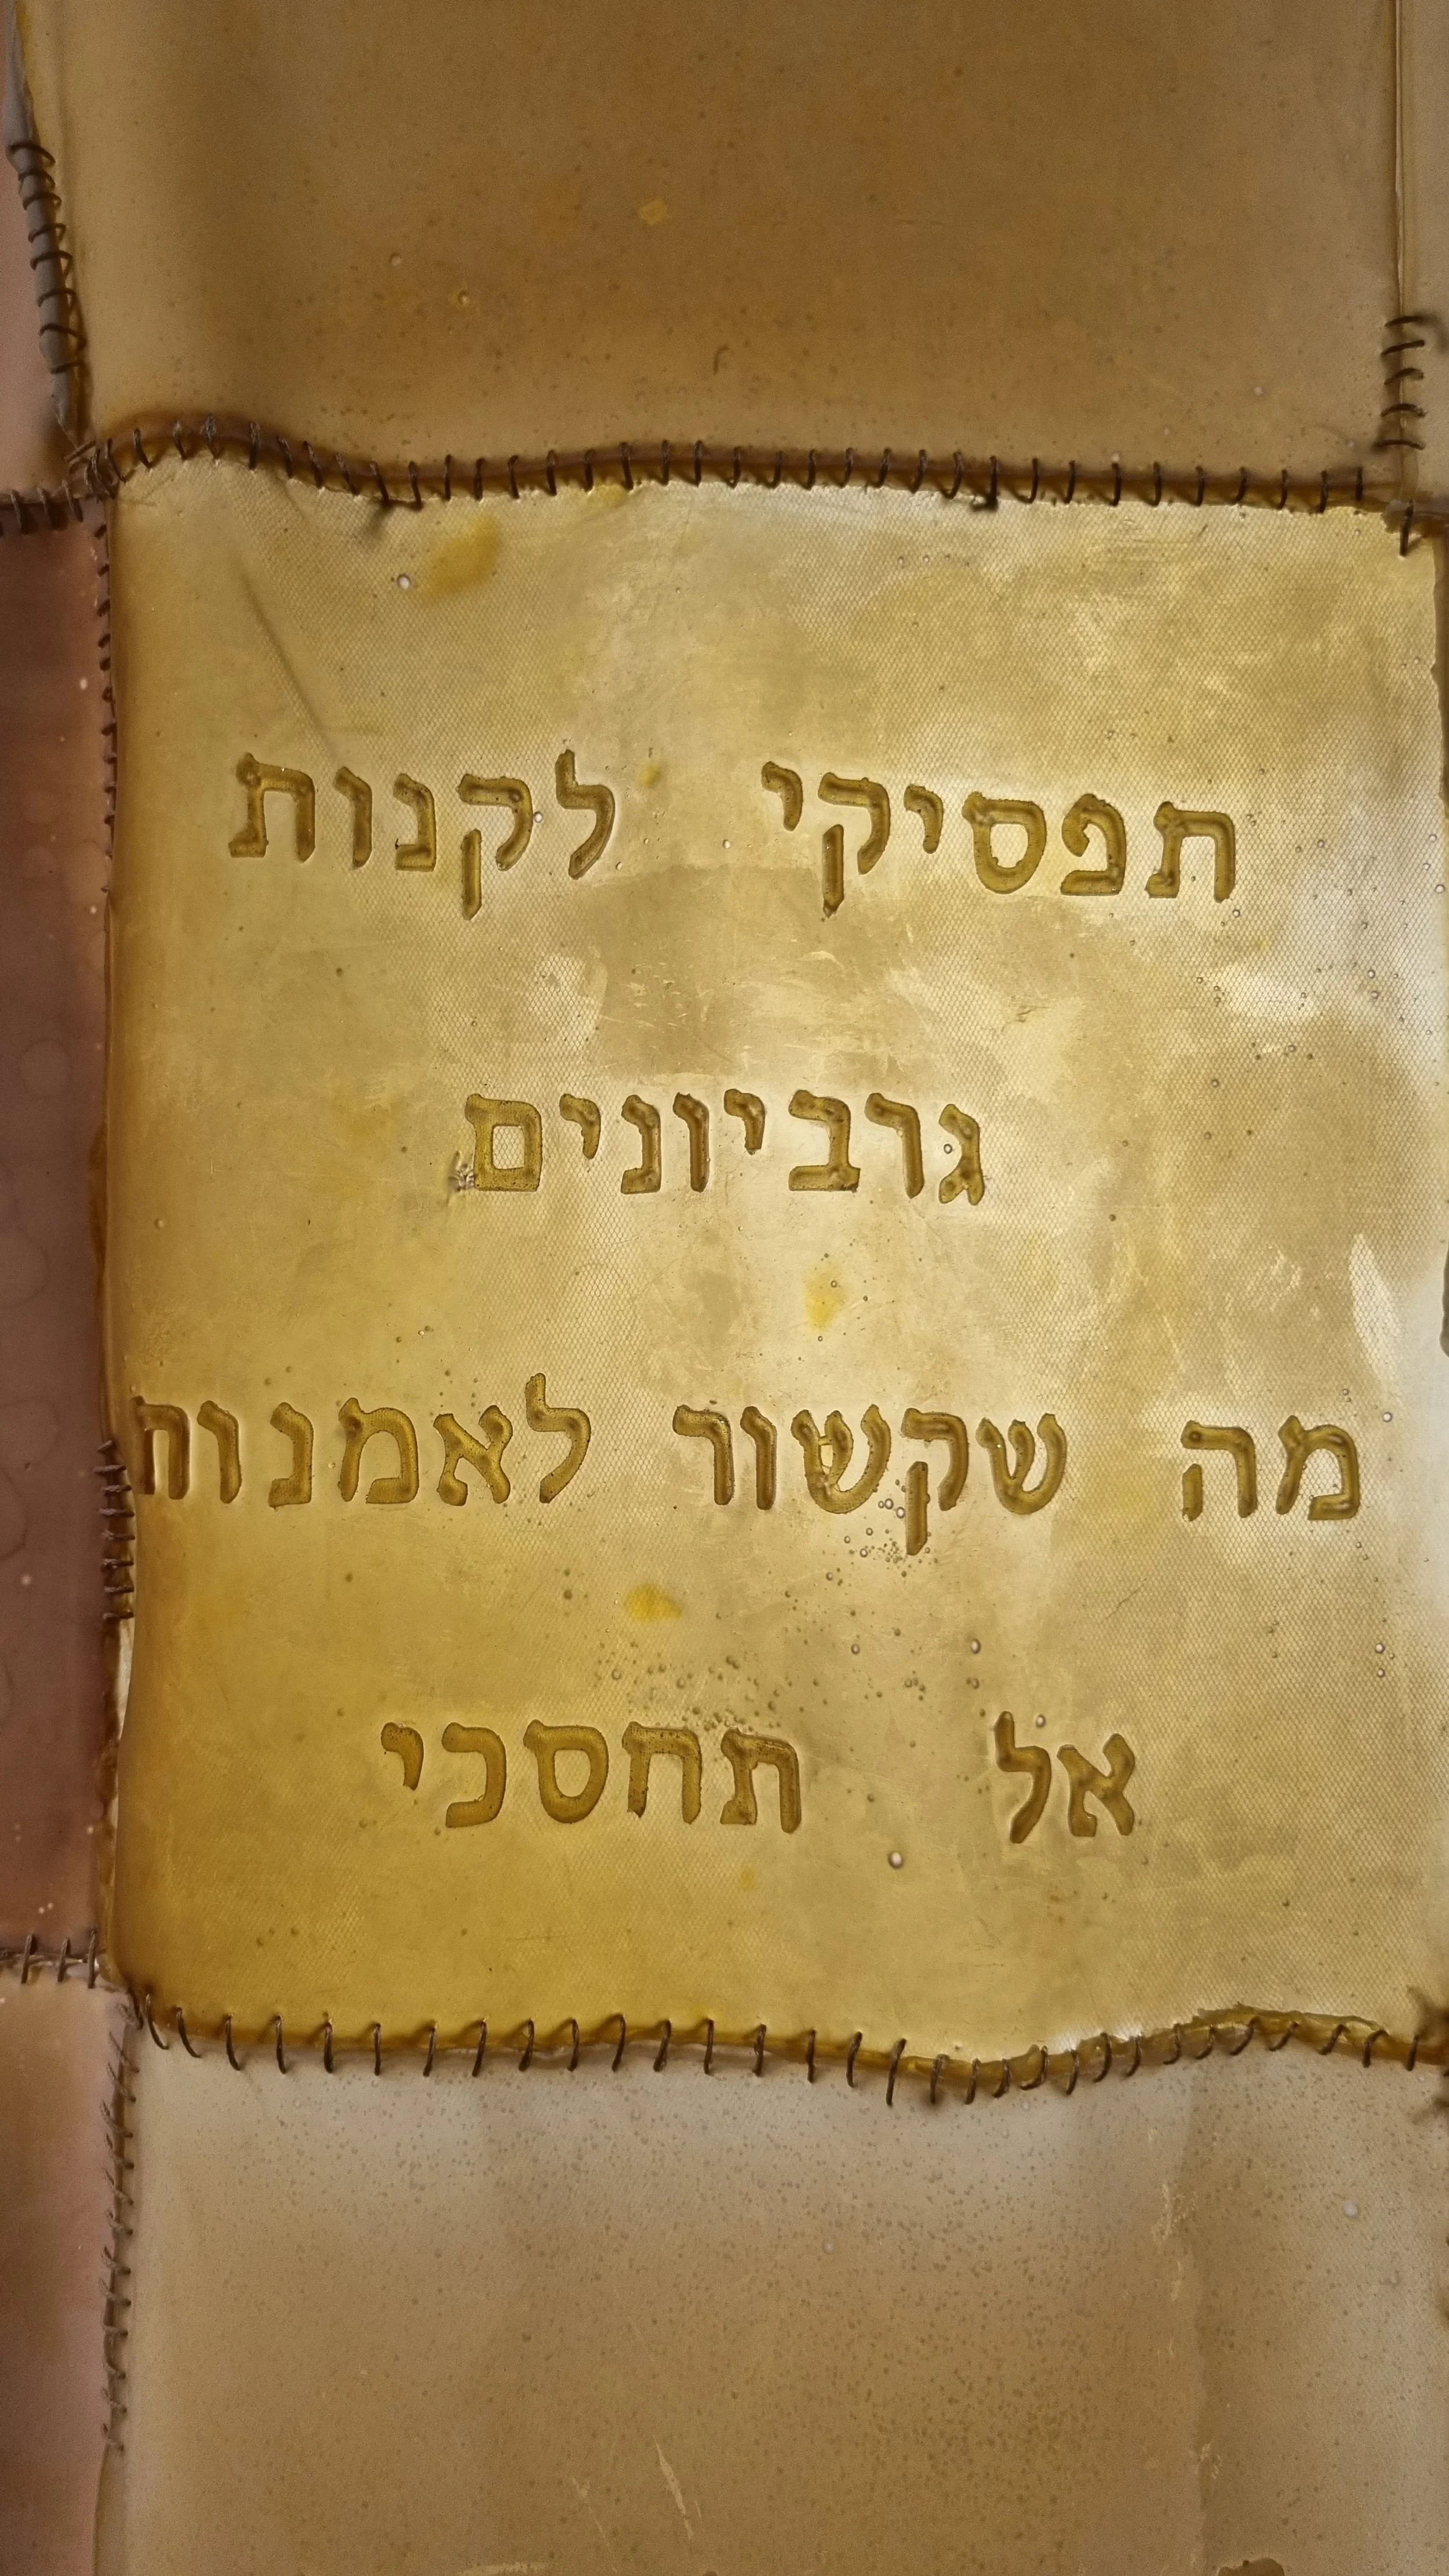 תפסיקי לקנות
גרביונים
מה שקשור לאמנות
אל תחסכי